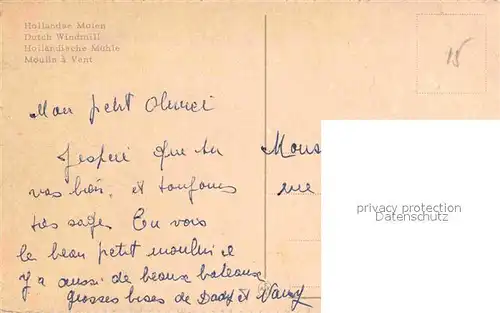 Hollandse Molen
Dutch Windmill
Holländische Mühle
Moulin à Vent
15
Mon petit
J'espère que tu
vas bien, et toujours
très sage. Tu vois
le beau petit moulin il
y a aussi de beaux bateaux
grosses bises de Dady et Nany
Mons
rue
privacy protection
Datenschutz